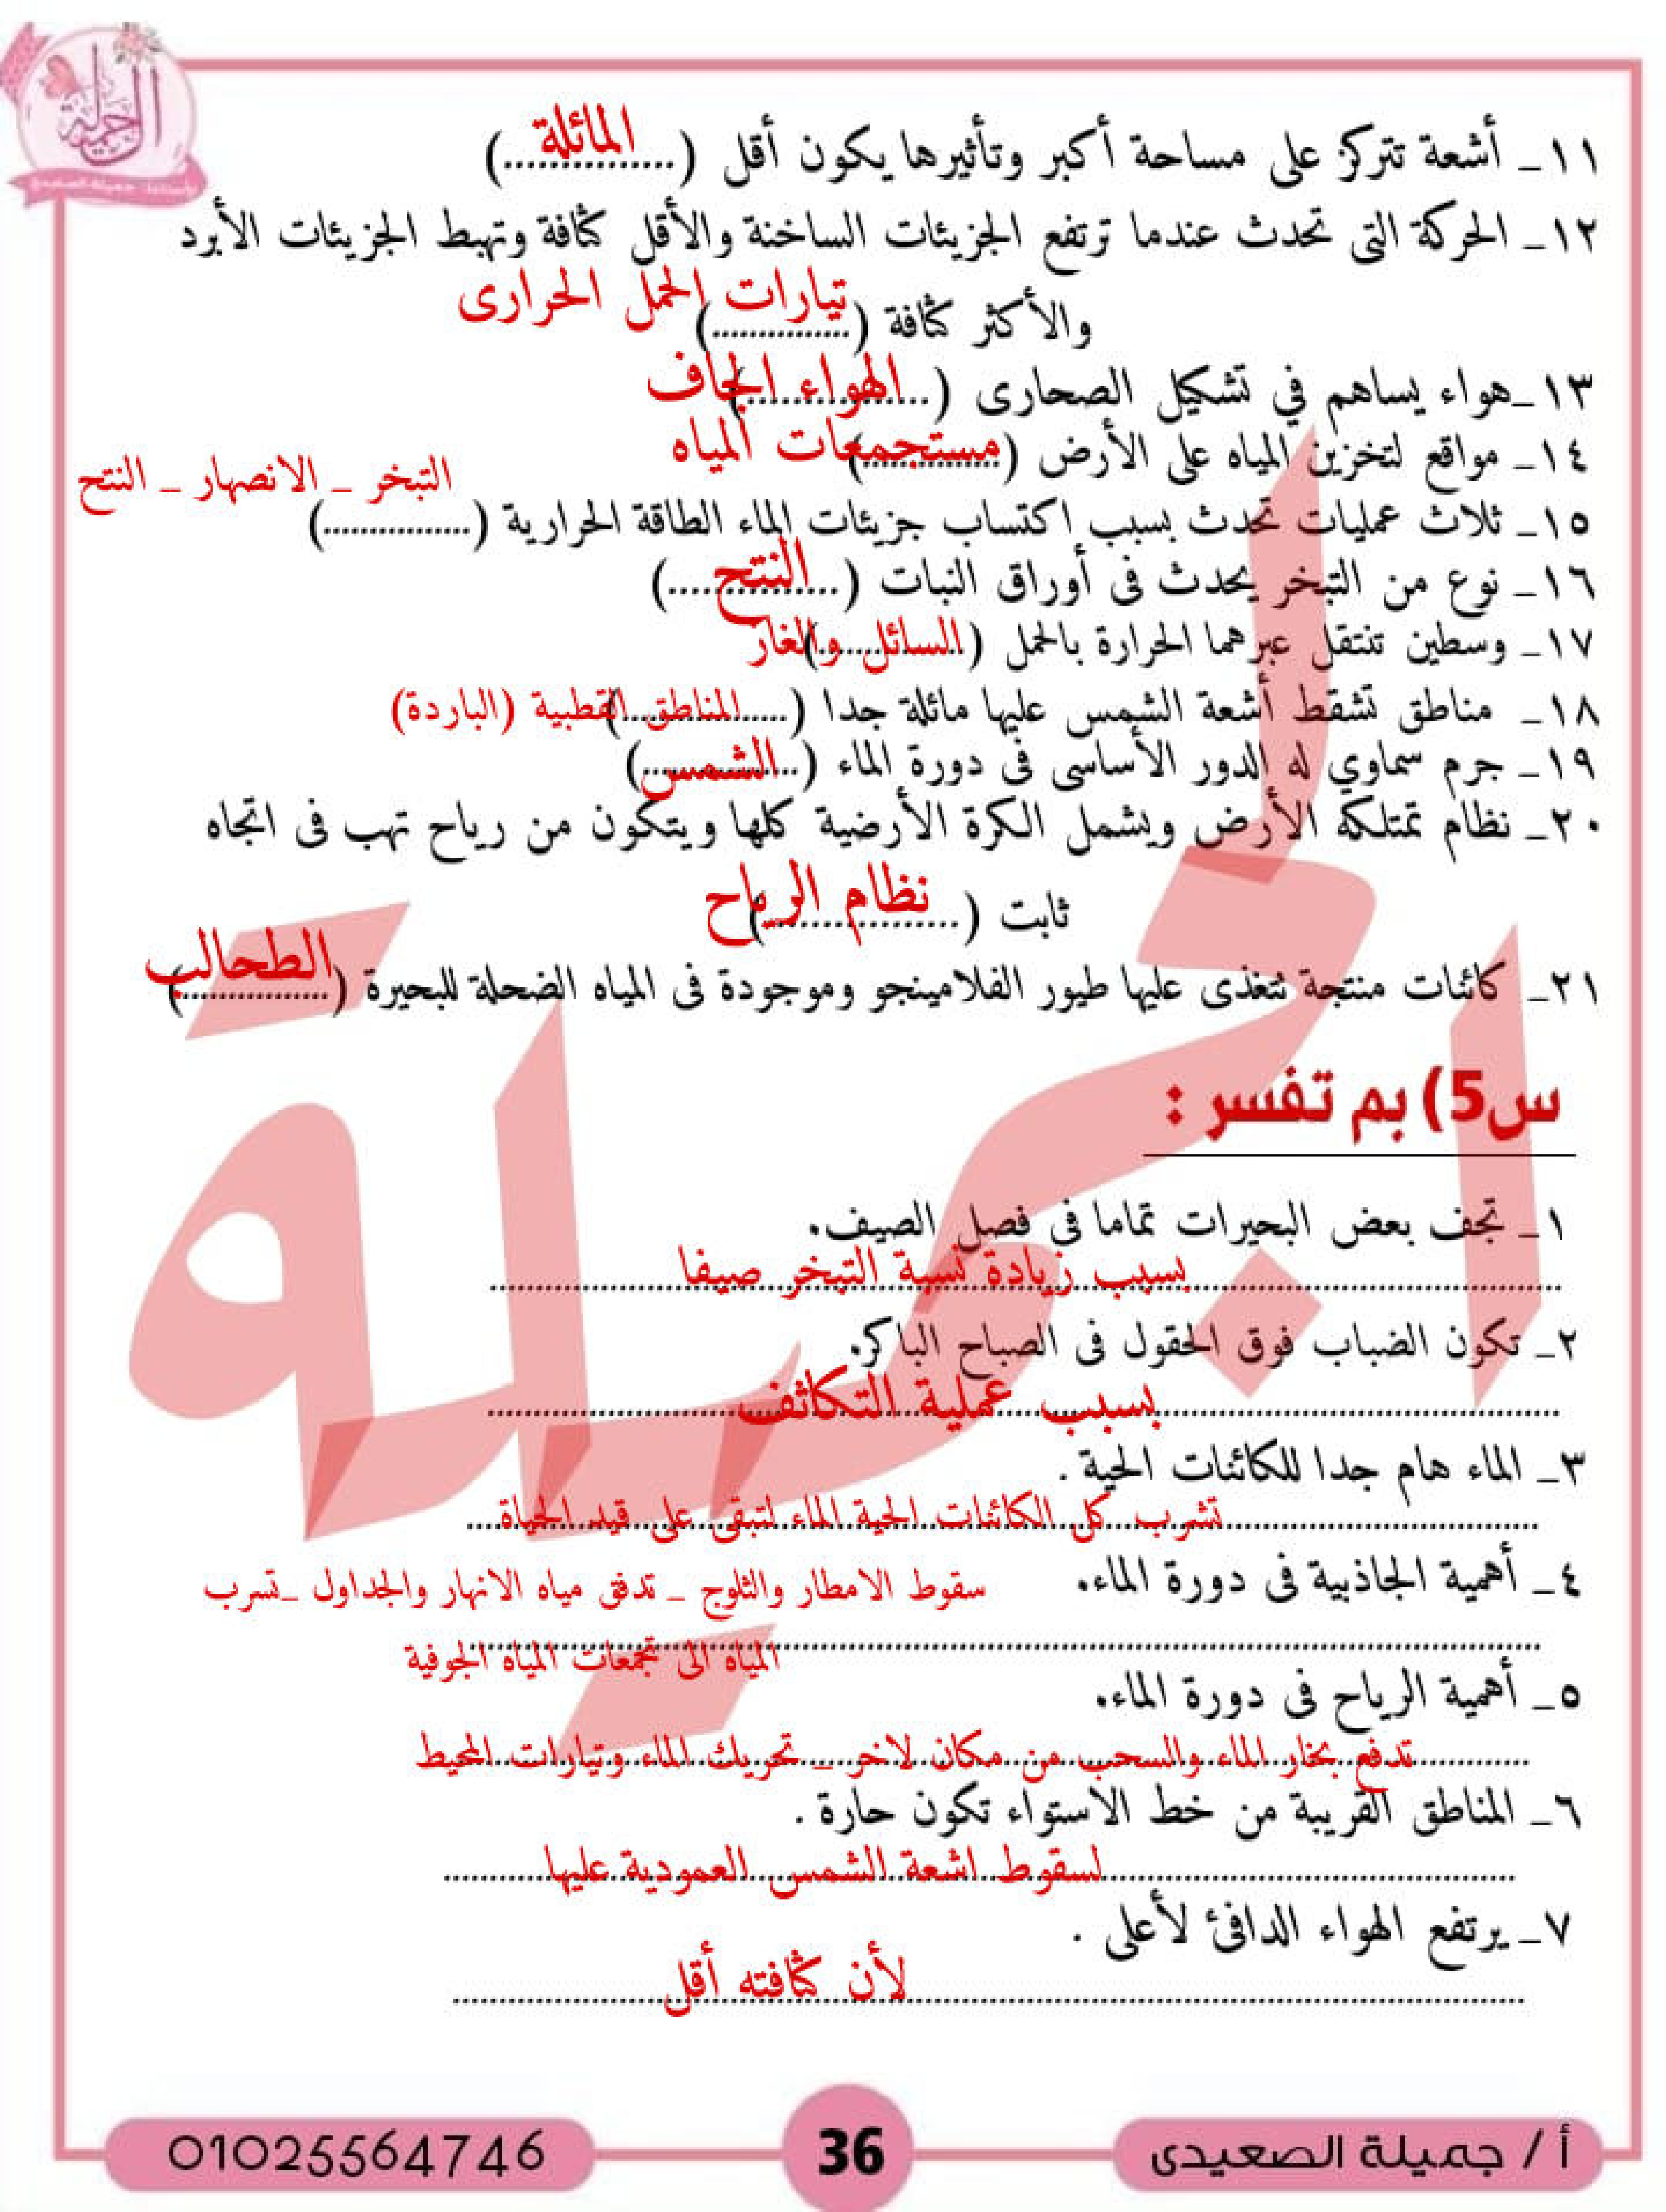 الجميلة
١١_ أشعة تتركز على مساحة أكبر وتأثيرها يكون أقل (المائلة................)
١٢_ الحركة التى تحدث عندما ترتفع الجزيئات الساخنة والأقل كثافة وتهبط الجزيئات الأبرد
والأكثر كثافة (...............) تيارات الحمل الحرارى
١٣_هواء يساهم في تشكيل الصحارى (................) الهواء الجاف
١٤_ مواقع لتخزين المياه على الأرض (...............) مستجمعات المياه
التبخر _ الانصهار _ النتح
١٥_ ثلاث عمليات تحدث بسبب اكتساب جزيئات الماء الطاقة الحرارية (................)
١٦_ نوع من التبخر يحدث فى أوراق النبات (النتح................)
١٧_ وسطين تنتقل عبرهما الحرارة بالحمل (................) السائل والغاز
١٨_ مناطق تشقط أشعة الشمس عليها مائلة جدا (................) المناطق القطبية (الباردة)
١٩_ جرم سماوي له الدور الأساسى فى دورة الماء (الشمس................)
٢٠_ نظام تمتلكه الأرض ويشمل الكرة الأرضية كلها ويتكون من رياح تهب فى اتجاه
ثابت (...................) نظام الرياح
٢١_ كائنات منتجة تتغذى عليها طيور الفلامينجو وموجودة فى المياه الضحلة للبحيرة (................) الطحالب
س5) بم تفسر :
١_ تجف بعض البحيرات تماما فى فصل الصيف.
بسبب زيادة نسبة التبخر صيفا
٢_ تكون الضباب فوق الحقول فى الصباح الباكر.
بسبب عملية التكاثف
٣_ الماء هام جدا للكائنات الحية .
تشرب كل الكائنات الحية الماء لتبقى على قيد الحياة
٤_ أهمية الجاذبية فى دورة الماء. سقوط الامطار والثلوج _ تدفق مياه الانهار والجداول _تسرب
المياه الى تجمعات المياه الجوفية
٥_ أهمية الرياح فى دورة الماء.
تدفع بخار الماء والسحب من مكان لاخر _ تحريك الماء وتيارات المحيط
٦_ المناطق القريبة من خط الاستواء تكون حارة .
لسقوط اشعة الشمس العمودية عليها
٧_ يرتفع الهواء الدافئ لأعلى .
لأن كثافته أقل
أ / جميلة الصعيدى
36
01025564746